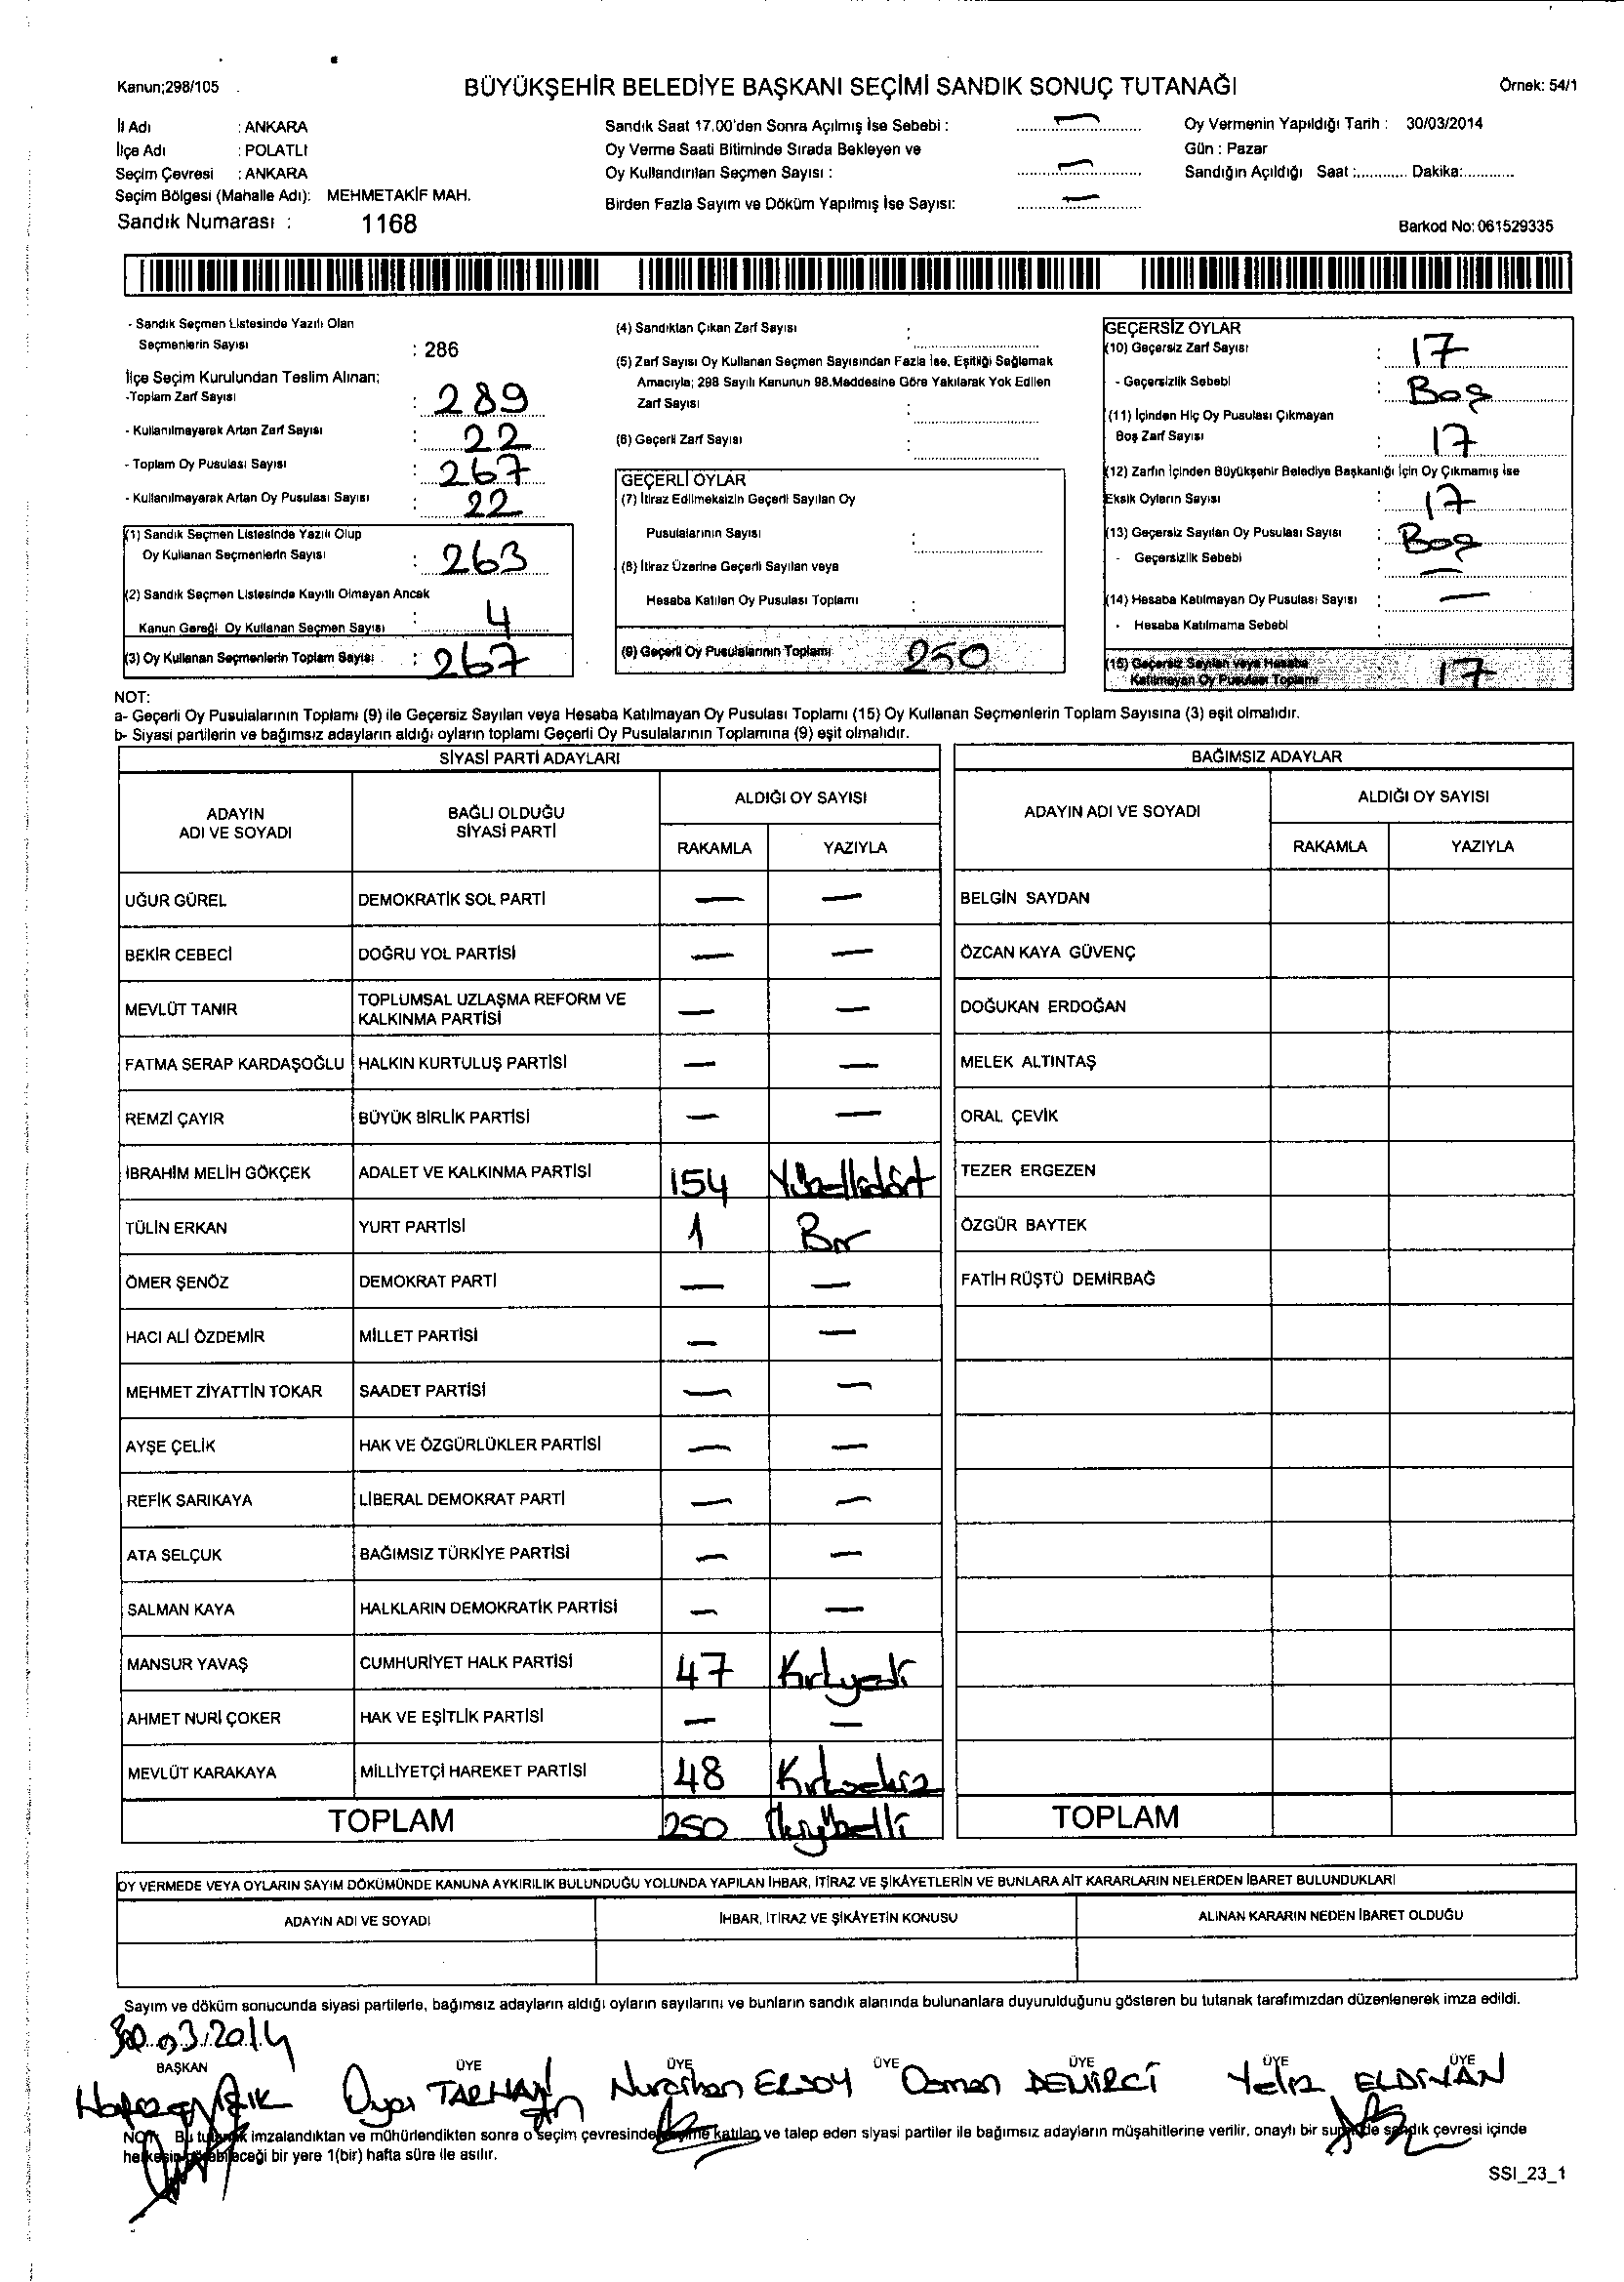 Kanun;298/105
BÜYÜKŞEHİR BELEDİYE BAŞKANI SEÇİMİ SANDIK SONUÇ TUTANAĞI
Örnek: 54/1
İl Adı : ANKARA
İlçe Adı : POLATLI
Seçim Çevresi : ANKARA
Seçim Bölgesi (Mahalle Adı): MEHMETAKİF MAH.
Sandık Numarası : 1168
Sandık Saat 17.00'den Sonra Açılmış İse Sebebi : —
Oy Verme Saati Bitiminde Sırada Bekleyen ve
Oy Kullandırılan Seçmen Sayısı : —
Birden Fazla Sayım ve Döküm Yapılmış İse Sayısı: —
Oy Vermenin Yapıldığı Tarih : 30/03/2014
Gün : Pazar
Sandığın Açıldığı Saat :............ Dakika:...........
Barkod No: 061529335
- Sandık Seçmen Listesinde Yazılı Olan
Seçmenlerin Sayısı : 286
İlçe Seçim Kurulundan Teslim Alınan;
-Toplam Zarf Sayısı : 289
- Kullanılmayarak Artan Zarf Sayısı : 22
- Toplam Oy Pusulası Sayısı : 267
- Kullanılmayarak Artan Oy Pusulası Sayısı : 22
(1) Sandık Seçmen Listesinde Yazılı Olup
Oy Kullanan Seçmenlerin Sayısı : 263
(2) Sandık Seçmen Listesinde Kayıtlı Olmayan Ancak
Kanun Gereği Oy Kullanan Seçmen Sayısı : 4
(3) Oy Kullanan Seçmenlerin Toplam Sayısı : 267
(4) Sandıktan Çıkan Zarf Sayısı :
(5) Zarf Sayısı Oy Kullanan Seçmen Sayısından Fazla İse, Eşitliği Sağlamak
Amacıyla; 298 Sayılı Kanunun 98.Maddesine Göre Yakılarak Yok Edilen
Zarf Sayısı :
(6) Geçerli Zarf Sayısı :
GEÇERLİ OYLAR
(7) İtiraz Edilmeksizin Geçerli Sayılan Oy
Pusulalarının Sayısı :
(8) İtiraz Üzerine Geçerli Sayılan veya
Hesaba Katılan Oy Pusulası Toplamı :
(9) Geçerli Oy Pusulalarının Toplamı 250
GEÇERSİZ OYLAR
(10) Geçersiz Zarf Sayısı : 17
- Geçersizlik Sebebi : Boş
(11) İçinden Hiç Oy Pusulası Çıkmayan
Boş Zarf Sayısı : 17
(12) Zarfın İçinden Büyükşehir Belediye Başkanlığı İçin Oy Çıkmamış İse
Eksik Oyların Sayısı : 17
(13) Geçersiz Sayılan Oy Pusulası Sayısı : Boş
- Geçersizlik Sebebi : —
(14) Hesaba Katılmayan Oy Pusulası Sayısı : —
- Hesaba Katılmama Sebebi :
(15) Geçersiz Sayılan veya Hesaba
Katılmayan Oy Pusulası Toplamı 17
NOT:
a- Geçerli Oy Pusulalarının Toplamı (9) ile Geçersiz Sayılan veya Hesaba Katılmayan Oy Pusulası Toplamı (15) Oy Kullanan Seçmenlerin Toplam Sayısına (3) eşit olmalıdır.
b- Siyasi partilerin ve bağımsız adayların aldığı oyların toplamı Geçerli Oy Pusulalarının Toplamına (9) eşit olmalıdır.
SİYASİ PARTİ ADAYLARI
ADAYIN
ADI VE SOYADI
BAĞLI OLDUĞU
SİYASİ PARTİ
ALDIĞI OY SAYISI
RAKAMLA YAZIYLA
UĞUR GÜREL DEMOKRATİK SOL PARTİ — —
BEKİR CEBECİ DOĞRU YOL PARTİSİ — —
MEVLÜT TANIR TOPLUMSAL UZLAŞMA REFORM VE
KALKINMA PARTİSİ — —
FATMA SERAP KARDAŞOĞLU HALKIN KURTULUŞ PARTİSİ — —
REMZİ ÇAYIR BÜYÜK BİRLİK PARTİSİ — —
İBRAHİM MELİH GÖKÇEK ADALET VE KALKINMA PARTİSİ 154 Yüzellidört
TÜLİN ERKAN YURT PARTİSİ 1 Bir
ÖMER ŞENÖZ DEMOKRAT PARTİ — —
HACI ALİ ÖZDEMİR MİLLET PARTİSİ — —
MEHMET ZİYATTİN TOKAR SAADET PARTİSİ — —
AYŞE ÇELİK HAK VE ÖZGÜRLÜKLER PARTİSİ — —
REFİK SARIKAYA LİBERAL DEMOKRAT PARTİ — —
ATA SELÇUK BAĞIMSIZ TÜRKİYE PARTİSİ — —
SALMAN KAYA HALKLARIN DEMOKRATİK PARTİSİ — —
MANSUR YAVAŞ CUMHURİYET HALK PARTİSİ 47 Kırkyedi
AHMET NURİ ÇOKER HAK VE EŞİTLİK PARTİSİ — —
MEVLÜT KARAKAYA MİLLİYETÇİ HAREKET PARTİSİ 48 Kırksekiz
TOPLAM 250 İkiyüzelli
BAĞIMSIZ ADAYLAR
ADAYIN ADI VE SOYADI
ALDIĞI OY SAYISI
RAKAMLA YAZIYLA
BELGİN SAYDAN
ÖZCAN KAYA GÜVENÇ
DOĞUKAN ERDOĞAN
MELEK ALTINTAŞ
ORAL ÇEVİK
TEZER ERGEZEN
ÖZGÜR BAYTEK
FATİH RÜŞTÜ DEMİRBAĞ
TOPLAM
OY VERMEDE VEYA OYLARIN SAYIM DÖKÜMÜNDE KANUNA AYKIRILIK BULUNDUĞU YOLUNDA YAPILAN İHBAR, İTİRAZ VE ŞİKÂYETLERİN VE BUNLARA AİT KARARLARIN NELERDEN İBARET BULUNDUKLARI
ADAYIN ADI VE SOYADI
İHBAR, İTİRAZ VE ŞİKÂYETİN KONUSU
ALINAN KARARIN NEDEN İBARET OLDUĞU
Sayım ve döküm sonucunda siyasi partilerle, bağımsız adayların aldığı oyların sayılarını ve bunların sandık alanında bulunanlara duyurulduğunu gösteren bu tutanak tarafımızdan düzenlenerek imza edildi.
30.03.2014
BAŞKAN ÜYE ÜYE ÜYE ÜYE ÜYE ÜYE
TARHAN Nurcihan ERSOY Osman DEMİRCİ Yeliz ELDİVAN
NOT: Bu tutanak imzalandıktan ve mühürlendikten sonra o seçim çevresinde seçime katılan ve talep eden siyasi partiler ile bağımsız adayların müşahitlerine verilir, onaylı bir sureti de sandık çevresi içinde
herkesin görebileceği bir yere 1(bir) hafta süre ile asılır.
SSI_23_1